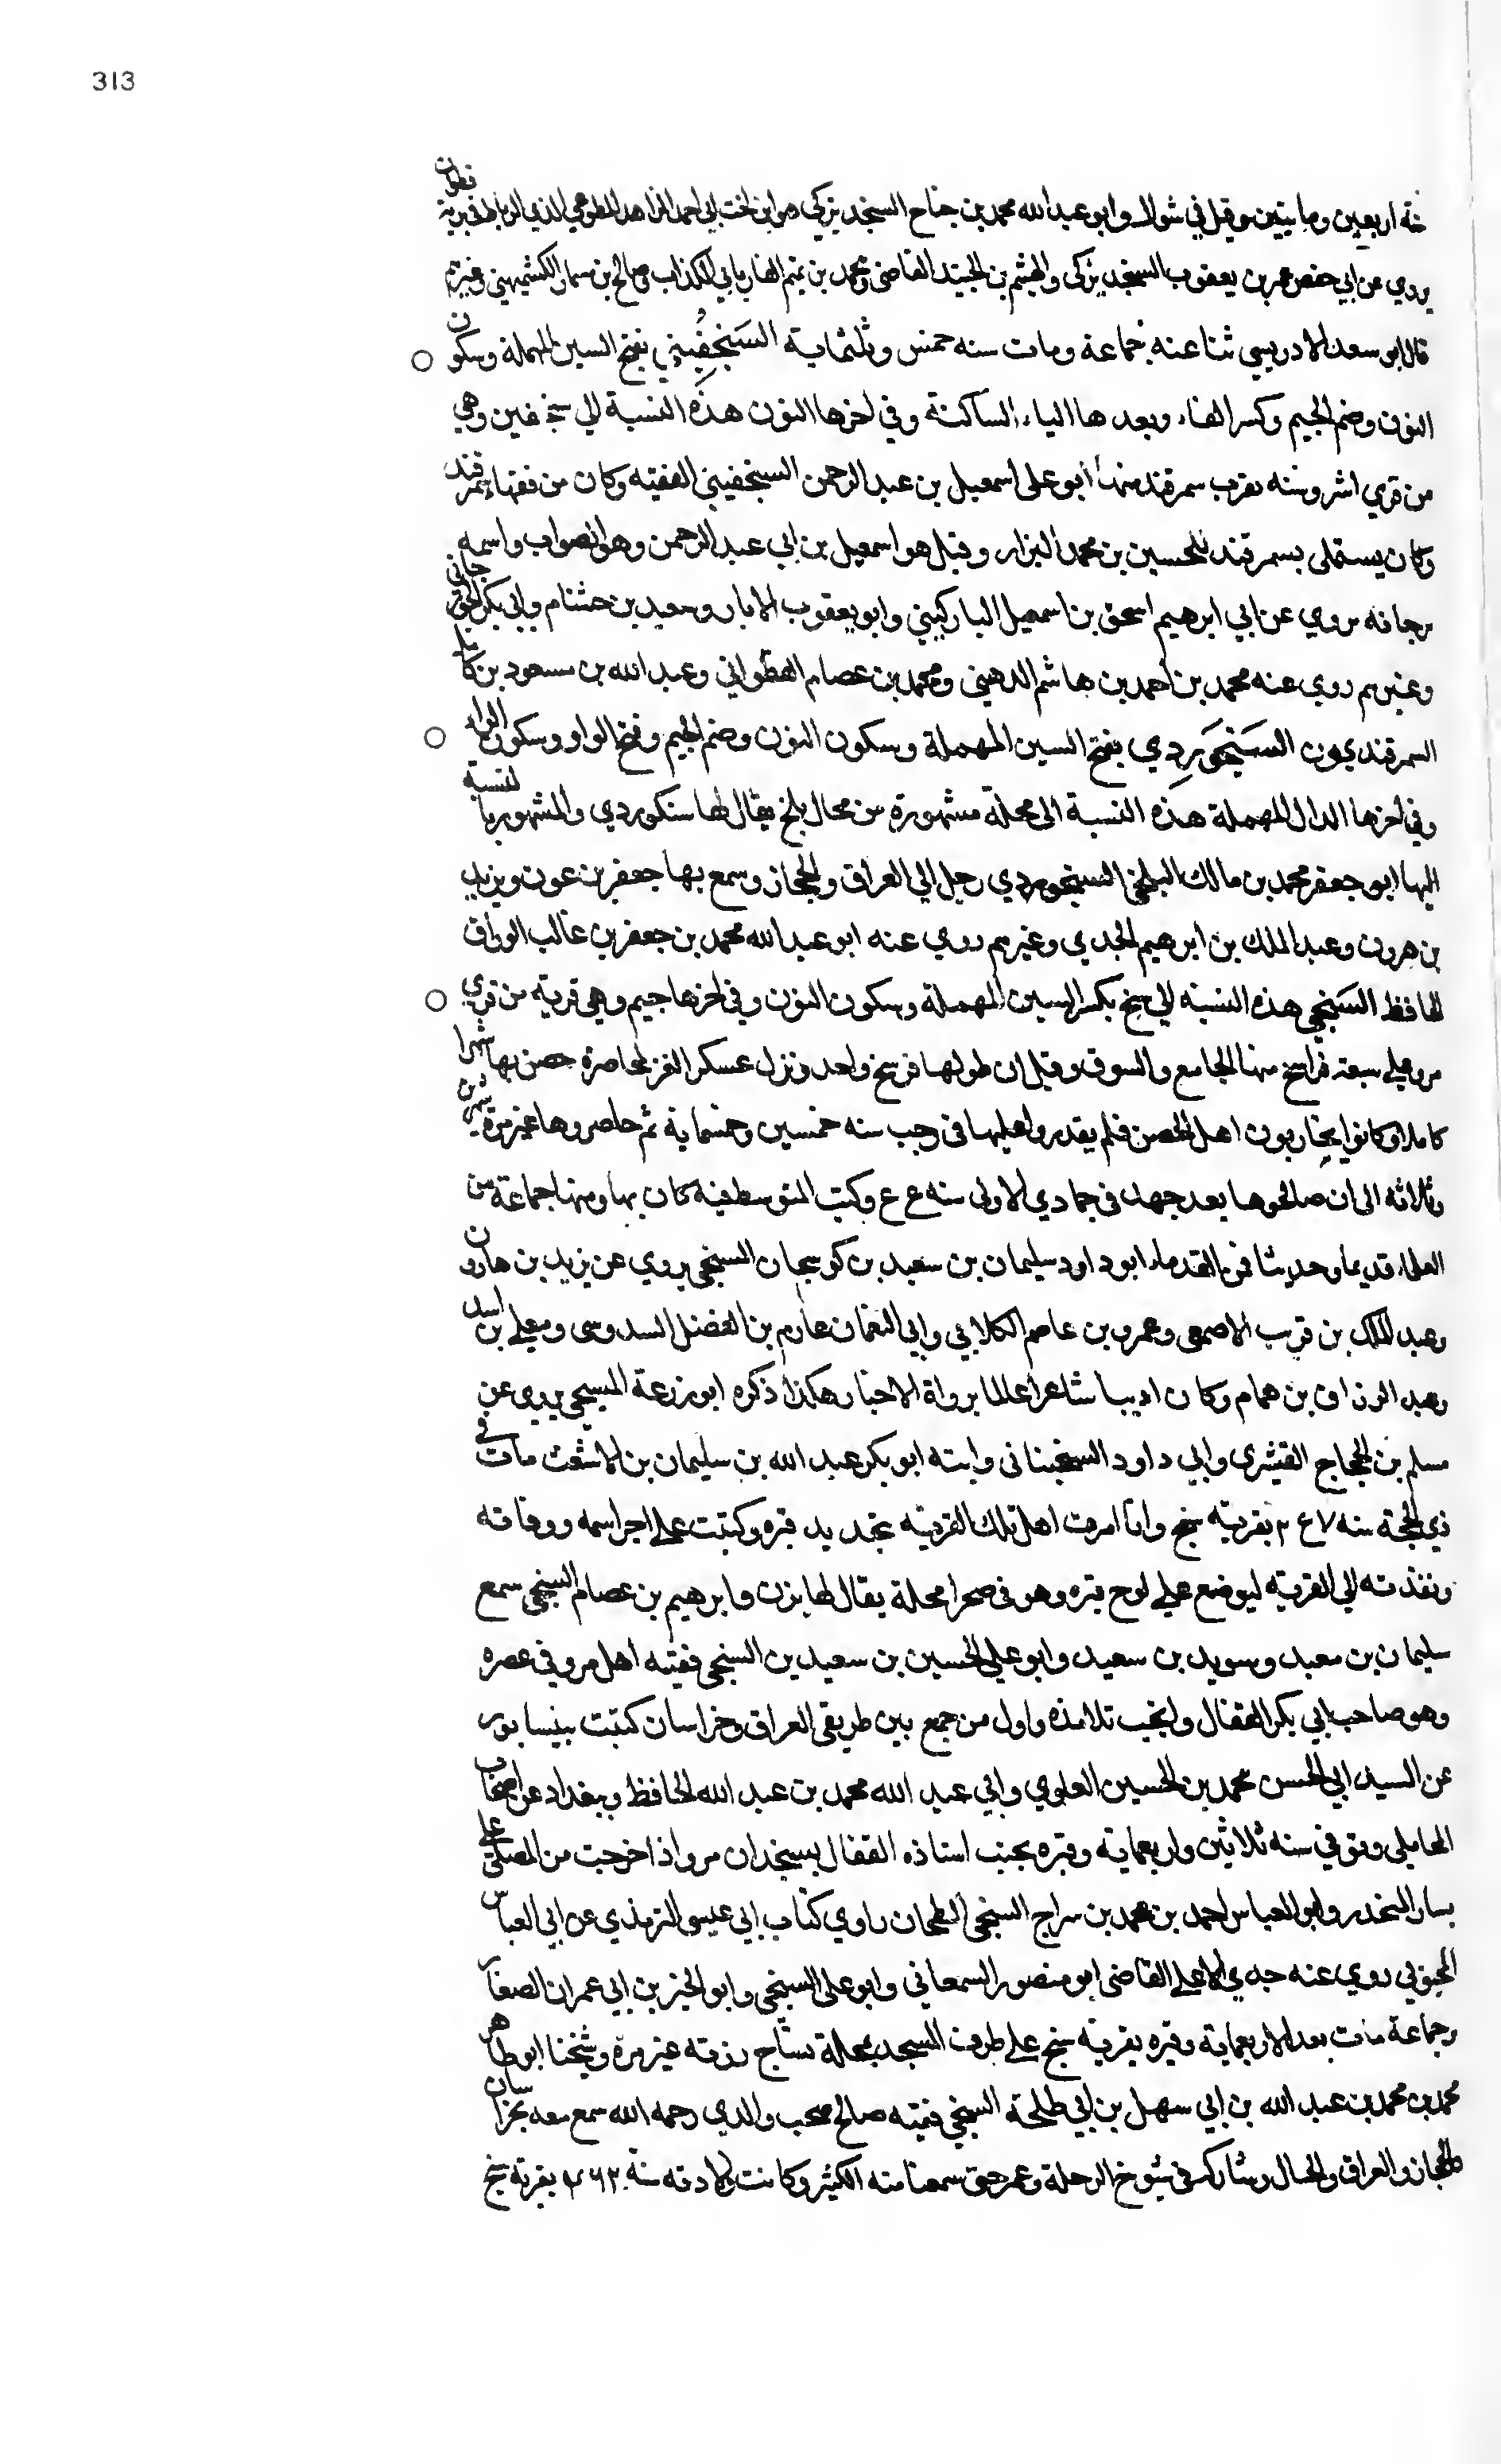 313
نة اربعين وماىتين وقيل في شوال وابو عبد الله محمد بن جناح السنجديزكي هو ابن اخت ابي احمد الزاهد المطوعي الذي الرباط في برية قطوان
يروي عن ابي حفص عمر بن يعقوب السنجديزكي والهيثم بن الجنيد القاضي ومحمد بن تميم الفاريابي الكذاب وصالح بن مسمار الكشميهني وغيرهم
قال ابو سعد الادريسي ثنا عنه جماعة ومات سنه خمس وثلثماية السَنجُفِيني بفتح السين المهملة وسكون
النون وضم الجيم وكسر الفاء وبعدها الياء الساكنة وفي اخرها النون هذه النسبة الي سنجفين وهي
من قري اشروسنه بقرب سمرقند منها ابو علي اسمعيل بن عبد الرحمن السنجفيني الفقيه وكان من فقهاء سمرقند
وكان يستملي بسمرقند للحسين بن محمد البزار وقيل هو اسمعيل بن ابي عبد الرحمن وهو الصواب واسمه
مرجانه يروي عن ابي ابرهيم اسحق بن اسمعيل الباركيني وابو يعقوب الابار وسعيد بن خشنام وابي بكر الجوزجاني
وغيرهم روي عنه محمد بن احمد بن هاشم الدهني ومحمد بن عصام القطواني وعبد الله بن مسعود بن كامل
السمرقنديون السَنجُوَردِي بفتح السين المهملة وسكون النون وضم الجيم وفتح الواو وسكون الراء
وفي اخرها الدال المهملة هذه النسبة الى محلة مشهورة من محال بلخ يقال لها سنكوردي والمشهور بالنسبة
اليها ابو جعفر محمد بن مالك البلخي السنجوردي رحل الي العراق والحجاز وسمع بها جعفر بن عون ويزيد
بن هرون وعبد الملك بن ابرهيم الجدي وغيرهم روي عنه ابو عبد الله محمد بن جعفر بن غالب الوراق
الحافظ السَنجي هذه النسبة الي سنج بكسر السين المهملة وسكون النون وفي اخرها جيم وهي قرية من قري
مرو علي سبعة فراسخ منها الجامع والسوق وقيل ان طولها فرسخ واحد ونزل عسكر الغز لمحاصرة حصن بها شهرا
كاملا وكانوا يحاربون اهل الحصن فلم يقدروا عليها في رجب سنه خمسين وخمساية ثم حاصروها غير مرة شهرين
وثلاثه الى ان صالحوها بعد جهد في جمادي الاولى سنه ع ع وكنت المتوسط فيه كان بها ومنها جماعة من
العلماء قديما وحديثا فمن القدماء ابو داود سليمان بن سعيد بن كوسجان السنجي يروي عن يزيد بن هارون
وعبد الملك بن قريب الاصمعي وعمرو بن عاصم الكلابي وابي النعمان عارم بن الفضل السدوسي ومعلي بن اسد
وعبد الرزاق بن همام وكان اديبا شاعرا عالما برواة الاخبار هكذا ذكره ابو زرعة المسيحي يروي عن
مسلم بن الحجاج القشيري وابي داود السجستاني وابنه ابو بكر عبد الله بن سليمان بن الاشعث مات في
ذي الحجة سنه ٢ع٧ بقرية سنج وانا امرت اهل تلك القرية بتجديد قبره وكتبت علي اجر اسمه ووفاته
ونفذته الي القرية ليوضع علي لوح قبره وهو في صحرا محلة يقال لها بزن وابرهيم بن عصام السنجي سمع
سليمان بن معبد وسويد بن سعيد وابو علي الحسين بن سعيد بن السنجي فقيه اهل مرو في عصره
وهو صاحب ابي بكر القفال وانجب تلامذه واول من جمع بين طريقي العراق وخراسان كتبت بنيسابور
عن السيد ابي الحسن محمد بن الحسين العلوي وابي عبد الله محمد بن عبد الله الحافظ وببغداد عن اصحاب
المحاملي وتوفي سنه ثلاثين واربعماية وقبره بجنب استاذه القفال بسنجدان مرو اذا خرجت من المصلى علي
يسار المنحدر وابو العباس احمد بن محمد بن سراج السنجي الطحان راوي كتاب ابي عيسى الترمذي عن ابي العباس
المحبوبي روي عنه جدي الاعلي القاضي ابو منصور السمعاني وابو علي السنجي وابو الخير بن ابي عمران الصفار
وجماعة مات بعد الاربعماية وقبره بقرية سنج علي طرف المسجد بمحلة نساج زرته غير مرة وشيخنا ابو طاهر
محمد بن محمد بن عبد الله بن ابي سهل بن ابي طلحة السنجي فقيه صالح صحب والدي رحمه الله سمع معه بخراسان
والحجاز والعراق والجبال وشاركه في شيوخ الرحلة وعمر حتى سمعنا منه الكثير وكانت ولادته سنة ٤٦٢ بقرية سنج